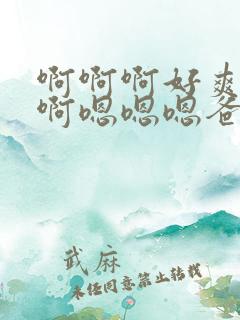 啊啊啊好爽
啊嗯嗯嗯爸
武麻
未经同意禁止转载